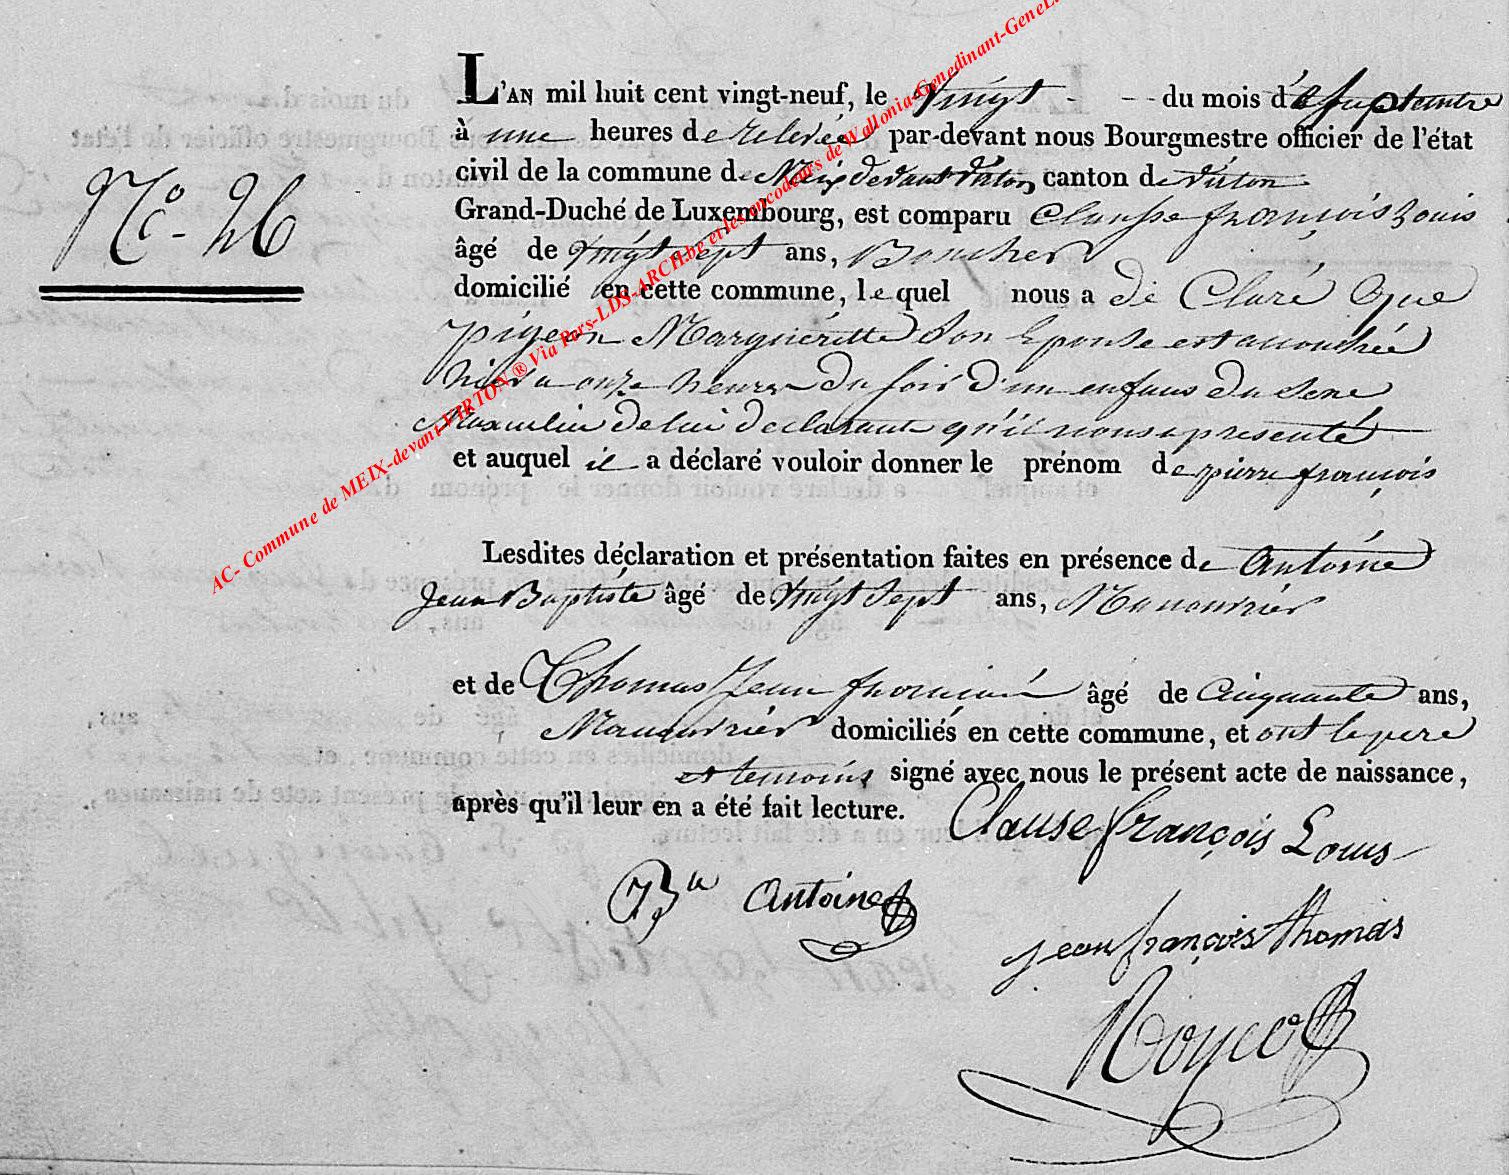 L'AN mil huit cent vingt-neuf, le Vingt - - du mois de Septembre
à une heures de relevée par-devant nous Bourgmestre officier de l'état
civil de la commune de Meix devant Virton canton de Virton
N° - 26
Grand-Duché de Luxembourg, est comparu Clausse françois Louis
âgé de Vingt Sept ans, Boucher
domicilié en cette commune, lequel nous a dé Claré Que
pigeon Marguéritte Son Epouse est accouchée
hier a onze heures du soir d'un enfans du Sexe
Masculin de lui declarant qu'il nous a presenté
et auquel il a déclaré vouloir donner le prénom de pierre françois
Lesdites déclaration et présentation faites en présence de Antoine
Jean Baptiste âgé de Vingt Sept ans, Manouvrier
et de Thomas Jean françois âgé de Cinquante ans,
Manouvrier domiciliés en cette commune, et ont le pere
et temoins signé avec nous le présent acte de naissance,
après qu'il leur en a été fait lecture.
Clausse françois Louis
Antoine
jean françois thomas
AC- Commune de MEIX-devant-VIRTON ® Via Pers-LDS-ARCH.be et les encodeurs de Wallonia-Genedinant-GeneL